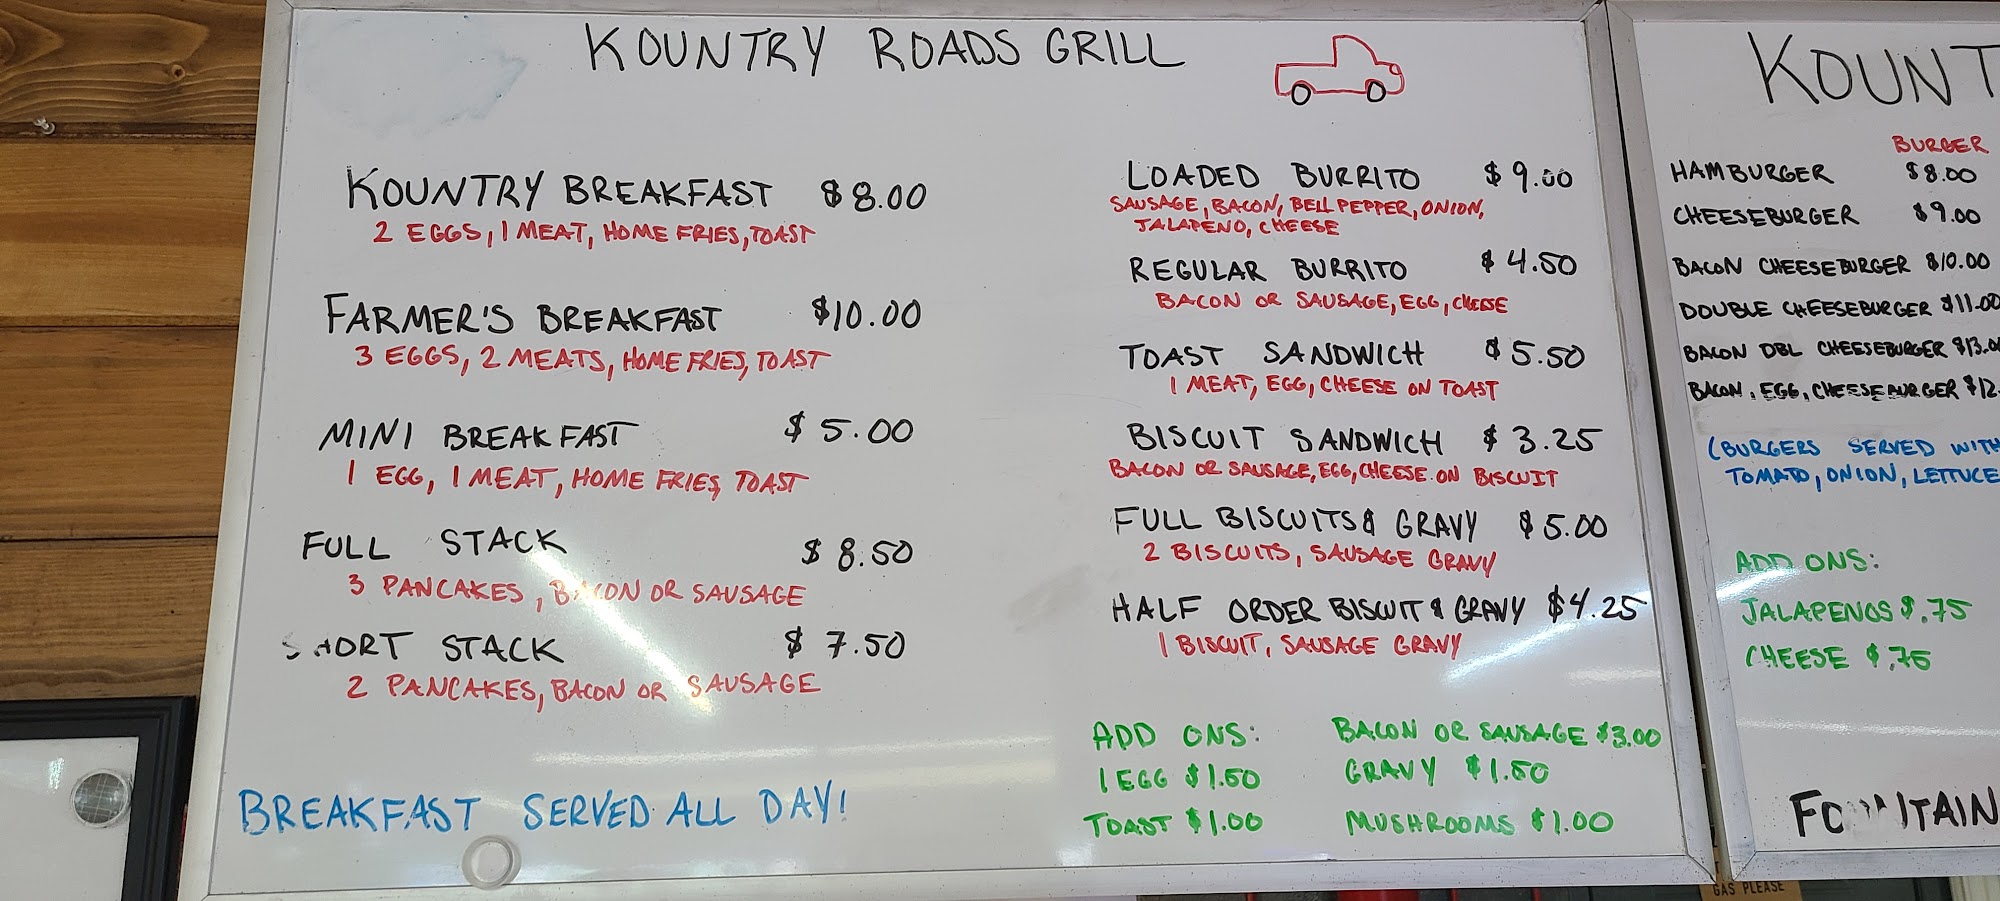 KOUNTRY ROADS GRILL
KOUNTRY BREAKFAST $8.00
2 EGGS, 1 MEAT, HOME FRIES, TOAST
FARMER'S BREAKFAST $10.00
3 EGGS, 2 MEATS, HOME FRIES, TOAST
MINI BREAKFAST $5.00
1 EGG, 1 MEAT, HOME FRIES, TOAST
FULL STACK $8.50
3 PANCAKES, BACON OR SAUSAGE
SHORT STACK $7.50
2 PANCAKES, BACON OR SAUSAGE
BREAKFAST SERVED ALL DAY!
LOADED BURRITO $9.00
SAUSAGE, BACON, BELL PEPPER, ONION,
JALAPENO, CHEESE
REGULAR BURRITO $4.50
BACON OR SAUSAGE, EGG, CHEESE
TOAST SANDWICH $5.50
1 MEAT, EGG, CHEESE ON TOAST
BISCUIT SANDWICH $3.25
BACON OR SAUSAGE, EGG, CHEESE ON BISCUIT
FULL BISCUITS & GRAVY $5.00
2 BISCUITS, SAUSAGE GRAVY
HALF ORDER BISCUIT & GRAVY $4.25
1 BISCUIT, SAUSAGE GRAVY
ADD ONS: BACON OR SAUSAGE $3.00
1 EGG $1.50 GRAVY $1.50
TOAST $1.00 MUSHROOMS $1.00
KOUNT
BURGER
HAMBURGER $8.00
CHEESEBURGER $9.00
BACON CHEESEBURGER $10.00
DOUBLE CHEESEBURGER $11.00
BACON DBL CHEESEBURGER $13.0
BACON, EGG, CHEESEBURGER $12.
(BURGERS SERVED WITH
TOMATO, ONION, LETTUCE
ADD ONS:
JALAPENOS $.75
CHEESE $.75
FOUNTAIN
GAS PLEASE